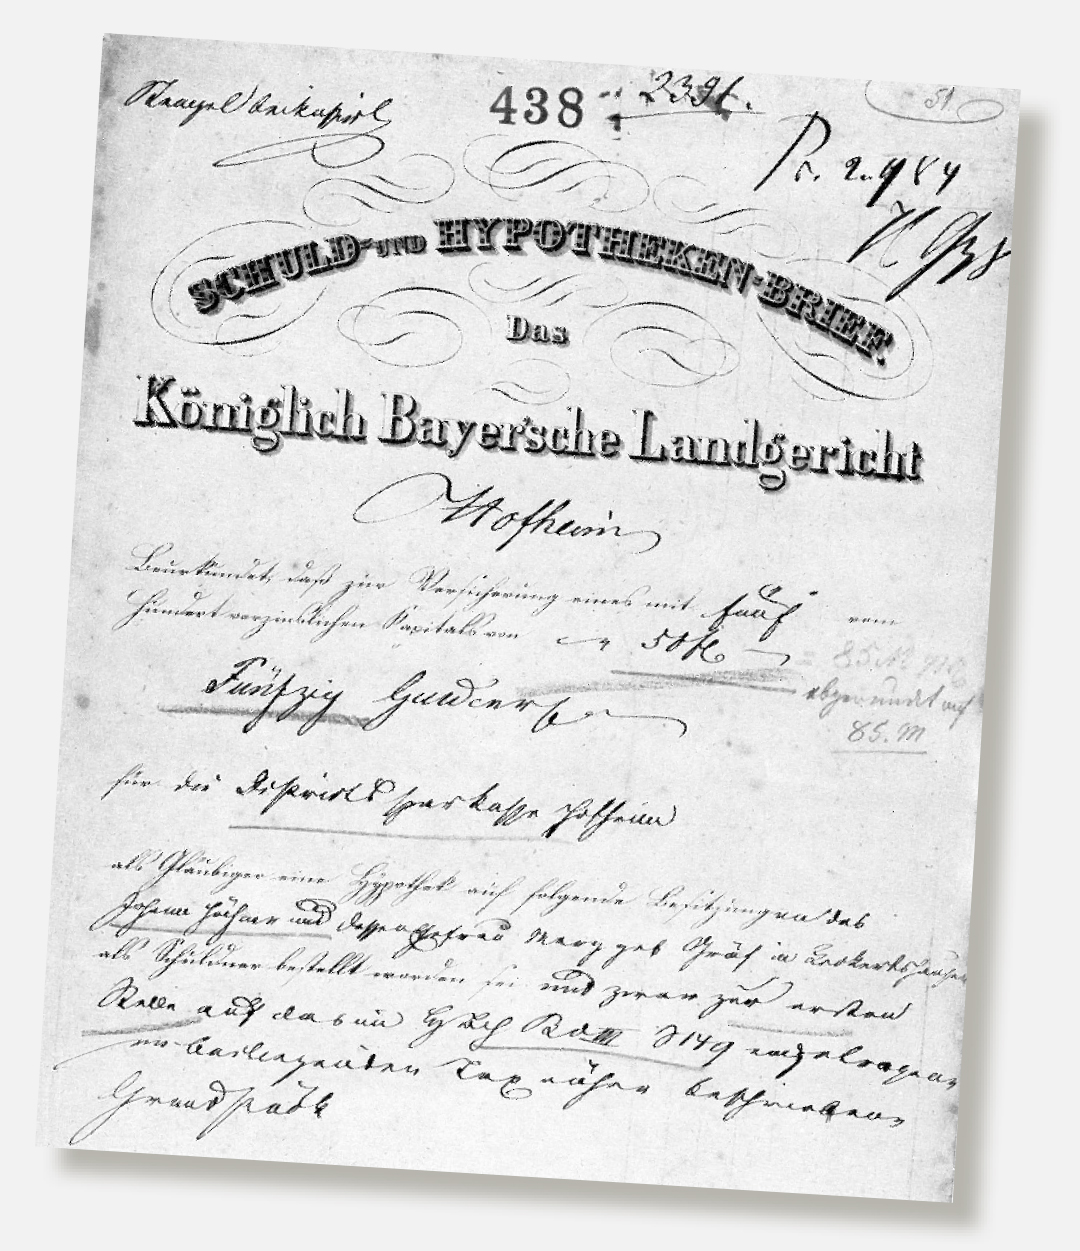 438 2391.
51
Pr. 2.984
SCHULD- UND HYPOTHEKEN-BRIEF.
Das
Königlich Bayer'sche Landgericht
Hofheim
Beurkundet, daß zur Versicherung eines mit fünf vom
hundert verzinslichen Kapitals von 50 fl
= 85 M
Fünfzig Gulden
abgerundet auf
85. M
für die Distrikts Sparkasse Hofheim
als Gläubiger eine Hypothek auf folgende Besitzungen des
Johann und dessen Ehefrau Marg geb Gräf in
als Schuldner bestellt worden sei und zwar zur ersten
Stelle auf das im Hyp Bch Bd III S 149 vorgetragene,
im beiliegenden Tax näher beschriebene,
Grundstück